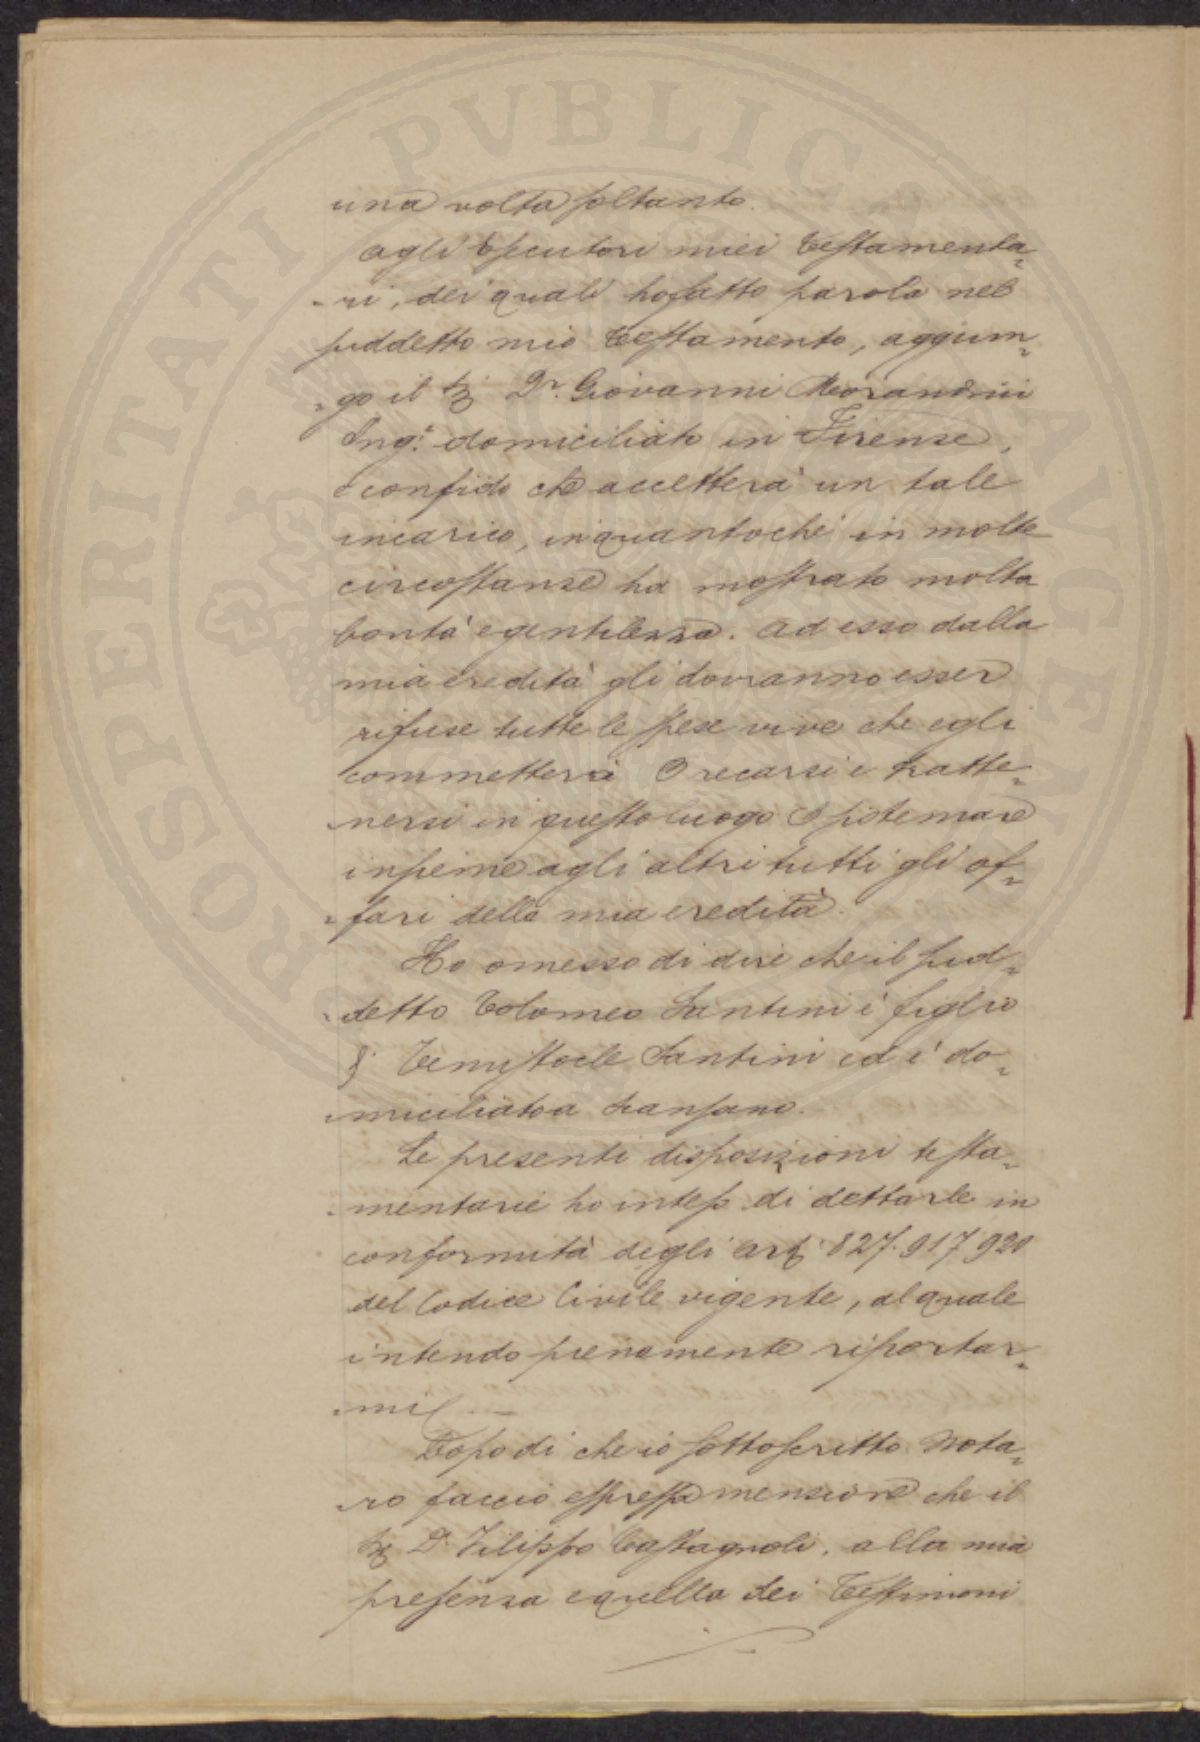 PROSPERITATI PVBLICAE AVGENDAE
una volta soltanto.
Agli Esecutori miei Testamenta=
=ri, dei quali ho fatto parola nel
suddetto mio Testamento, aggiun=
=go il Sig. Dr. Giovanni Morandini
Ing.e domiciliato in Firenze,
e confido che accetterà un tale
incarico, inquantochè in molte
circostanze ha mostrato molta
bontà e gentilezza. Ad esso dalla
mia eredità gli dovranno esser
rifuse tutte le spese vive che egli
commetterà recarsi e tratte=
=nersi in questo luogo e sistemare
insieme agli altri tutti gli af=
=fari della mia eredità.
Ho omesso di dire che il sud=
=detto Tolomeo Santini è figlio
di Temistocle Santini ed è do=
=miciliato a
Le presenti disposizioni testa=
=mentarie ho inteso di dettarle in
conformità degli Art. 827. 917. 920
del Codice Civile vigente, al quale
intendo pienamente riportar=
=mi. —
Dopo di che io sottoscritto Nota=
=ro faccio espressa menzione che il
Sig. Dr. Filippo Castagnoli, alla mia
presenza e quella dei Testimoni